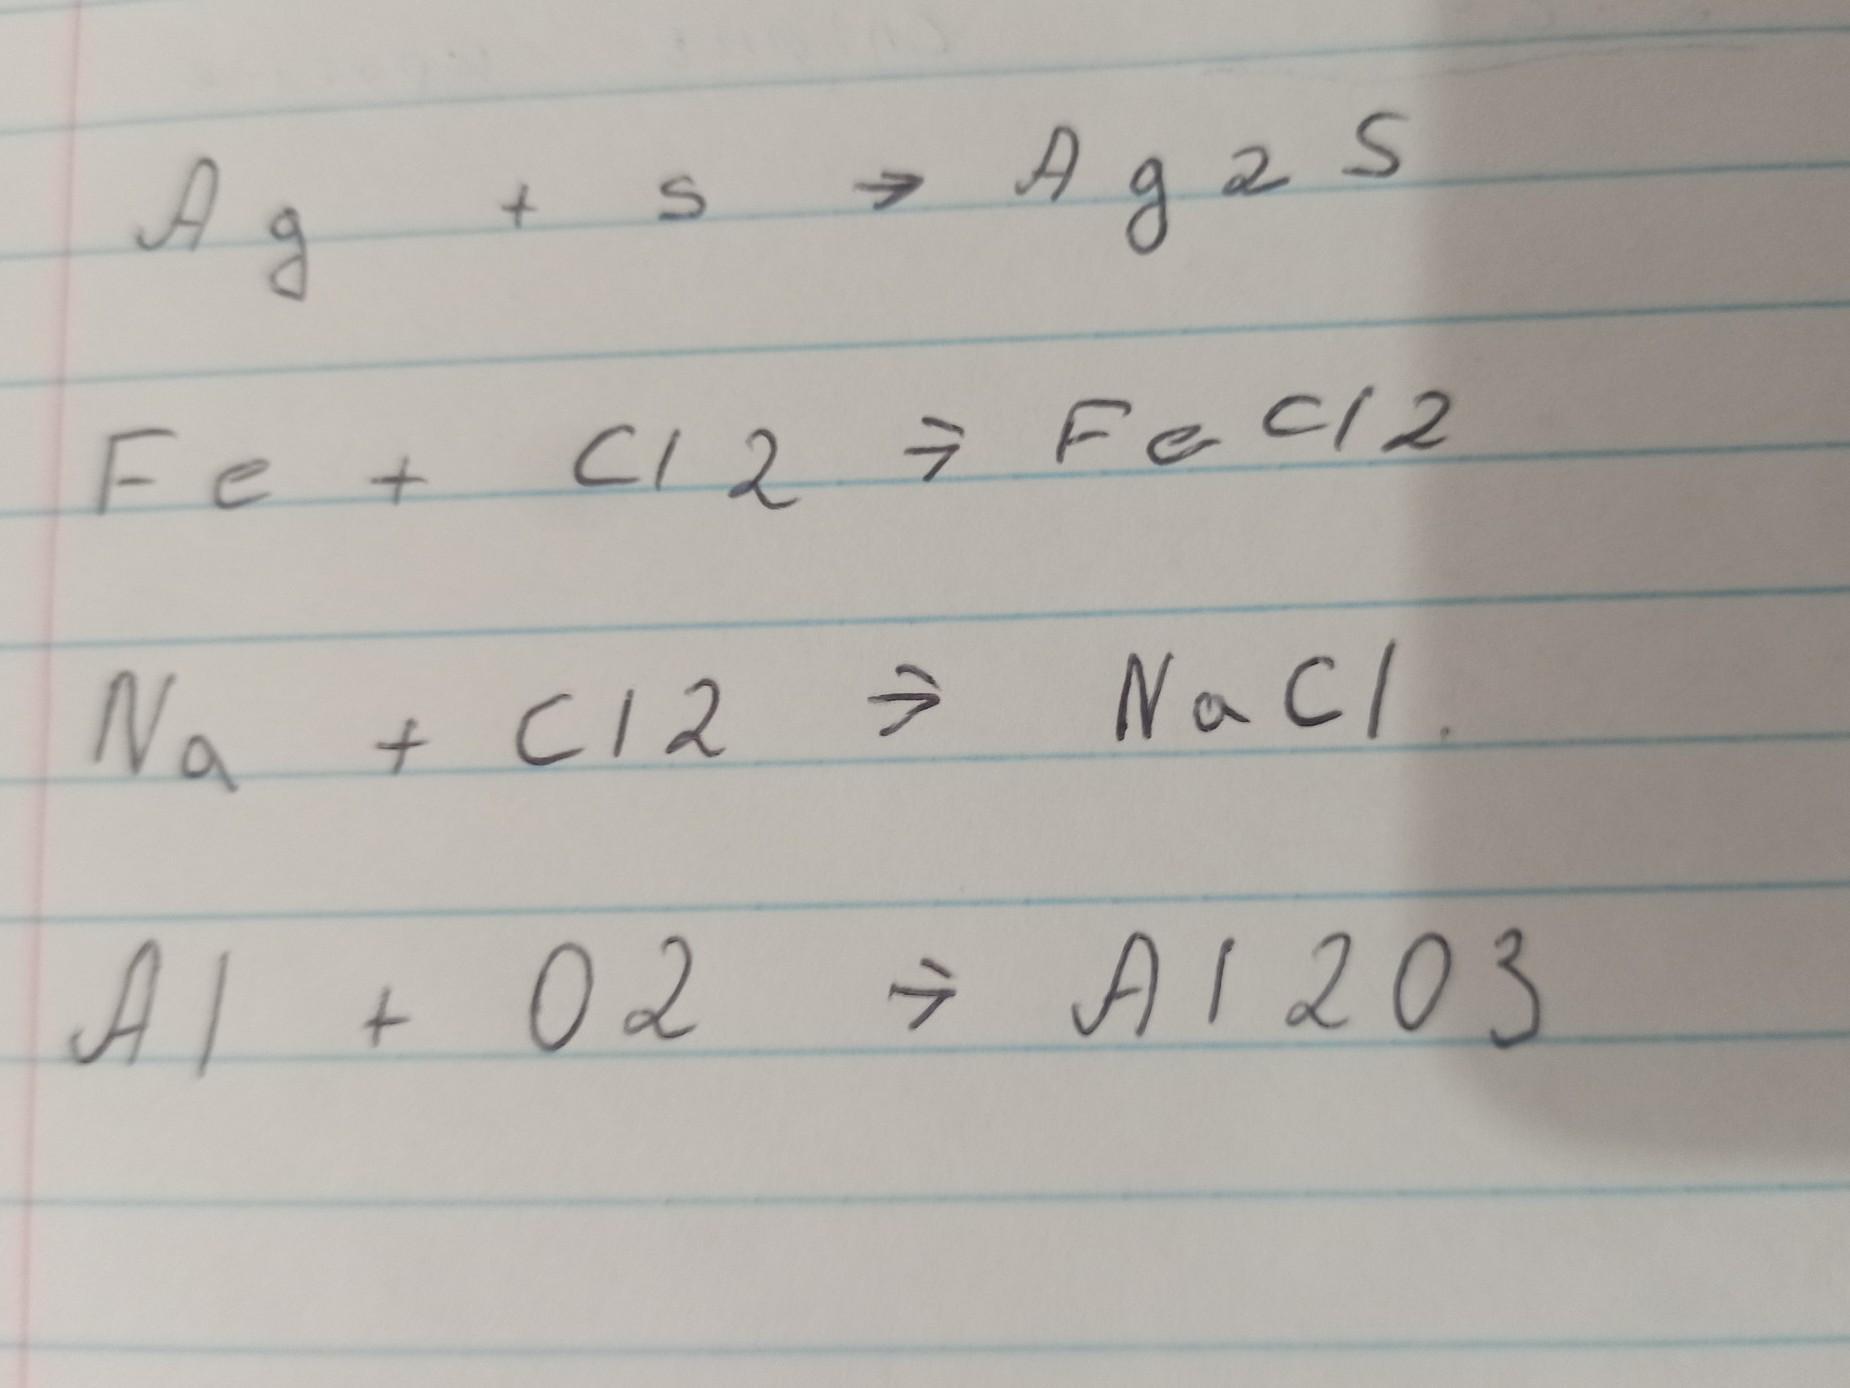 Ag + S → Ag2S
Fe + Cl2 → FeCl2
Na + Cl2 → NaCl.
Al + O2 → Al2O3